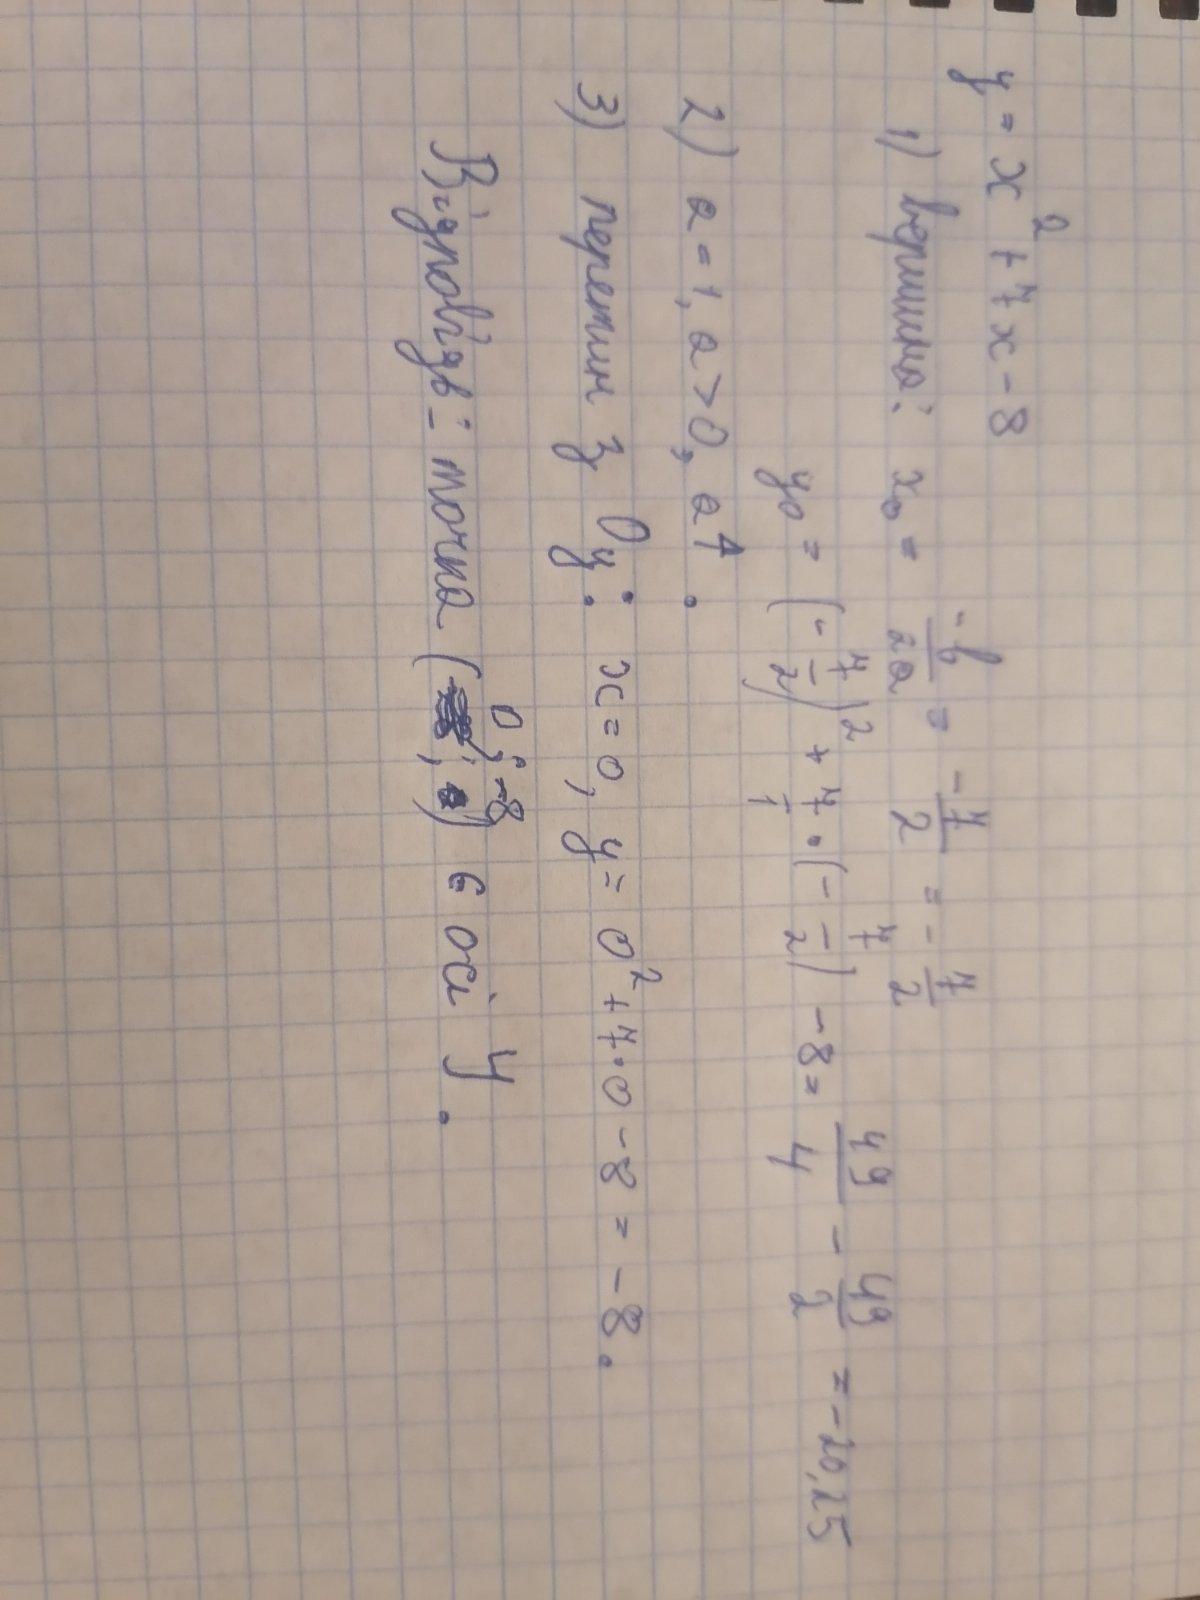 y = x² + 7x - 8
1) вершина: x₀ = -b/2a = -7/2 = -7/2
y₀ = (-7/2)² + 7/1 · (-7/2) - 8 = 49/4 - 49/2 = -20,25
2) a = 1, a > 0, a↑.
3) перетин з Oy: x = 0, y = 0² + 7·0 - 8 = -8.
Відповідь: точка (0; -8) є осі y.